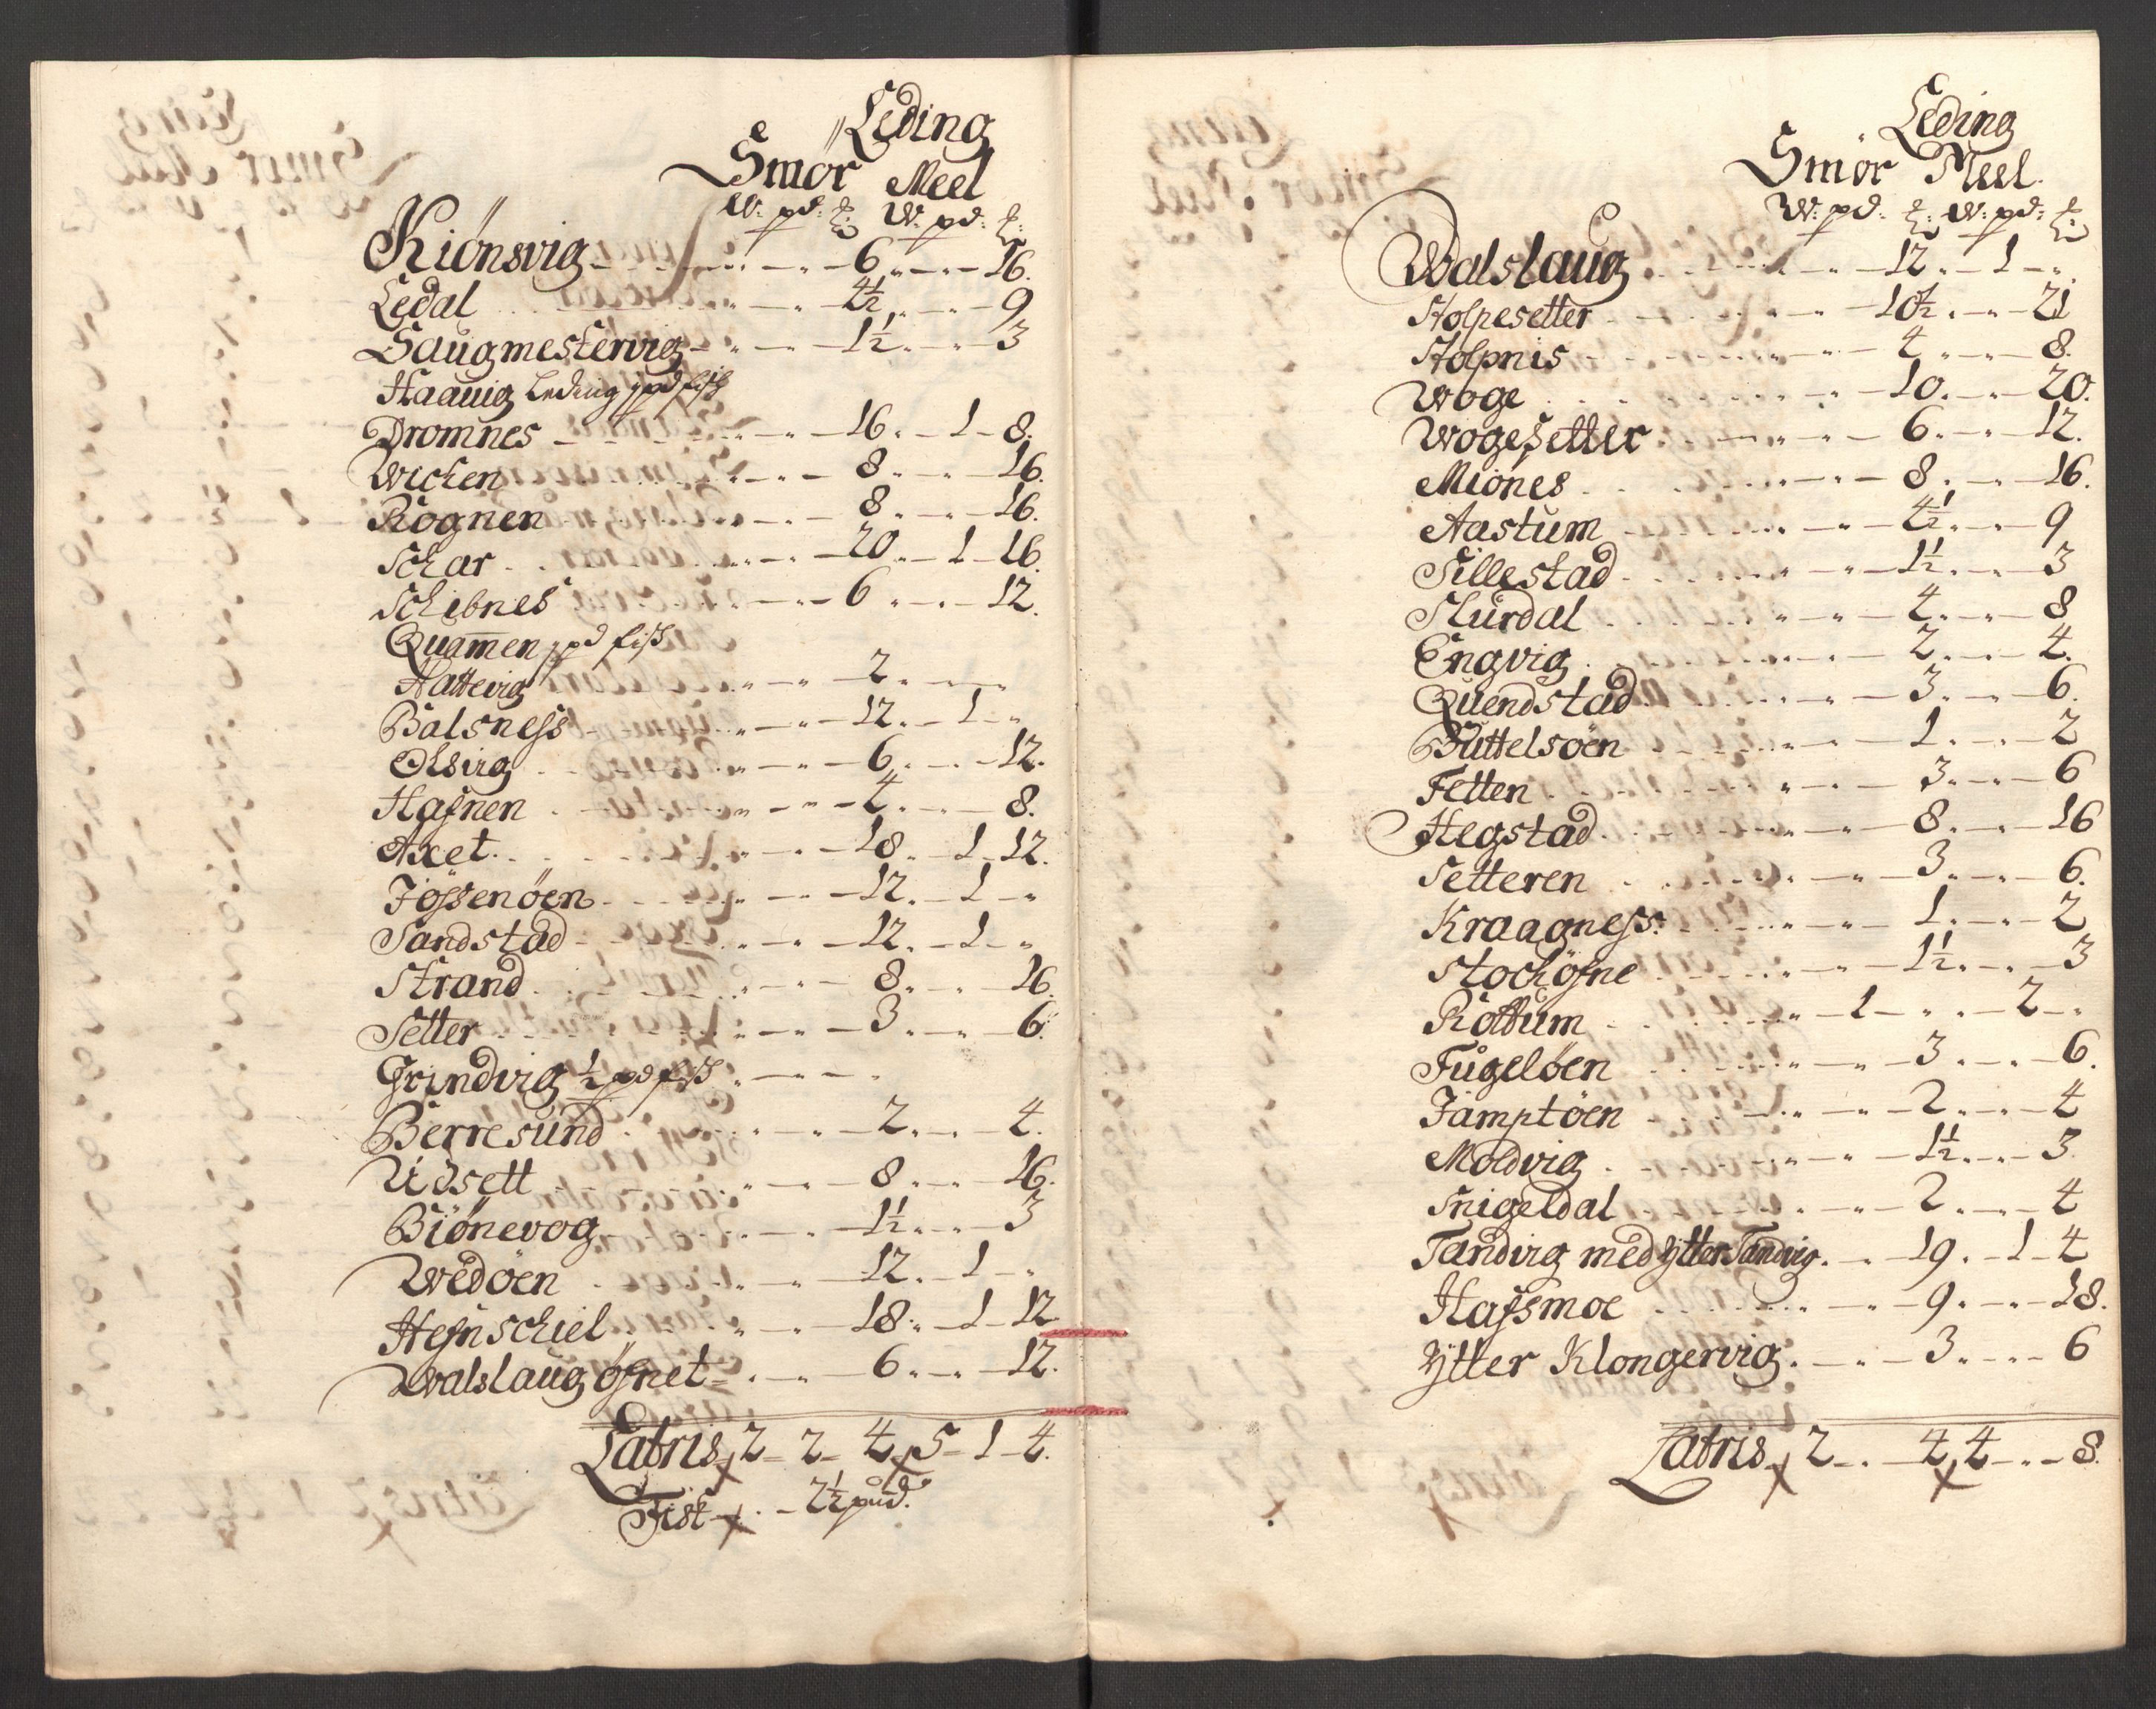 Leding
Smör Meel
W: pd: ℔: W: pd: ℔:
Kiönsvig - - - 6 - - 16.
Ledal - - - 4½ - - 9
Saugmestervig - - - 1½ - - 3
Haavig Leding j pd fisk
Dromnes - - - 16 - 1 - 8.
Wichen - - - 8 - - 16.
Rognen - - - 8 - - 16.
Schar - - - 20 - 1 - 16.
Schibnes - - - 6 - - 12.
Quam̅en j pd fisk
Hattevig - - - 2 - -
Balsness - - - 12 - 1 - "
Olsvig - - - 6 - - 12.
Hafnen - - - 4 - - 8.
Axet - - - 18 - 1 - 12.
Jössenöen - - - 12 - 1 - "
Sandstad - - - 12 - 1 - "
Strand - - - 8 - - 16.
Setter - - - 3 - - 6.
Grindvig ½ pd fisk - - -
Berresund - - - 2 - - 4.
Udsett - - - 8 - - 16.
Biönevog - - - 1½ - - 3
Wedöen - - - 12 - 1 - "
Hefnschiel - - - 18 - 1 - 12
Walslaug öfnet - - - 6 - - 12.
Latris 2 - 2 - 4 5 - 1 - 4.
Fisk - - 2½ pud.
Leding
Smör Meel.
W: pd: ℔: W: pd: ℔
Walslaug - - - 12 - 1 - "
Holpesetter - - - 10½ - - 21
Holpnis - - - 4 - - 8.
Woge - - - 10. - - 20.
Wogesetter - - - 6 - - 12.
Miönes - - - 8 - - 16.
Aastum - - - 4½ - - 9
Sillestad - - - 1½ - - 3
Slurdal - - - 4 - - 8
Engvig - - - 2 - - 4.
Quendstad - - - 3 - - 6.
Büttelsöen - - - 1 - - 2
Fetten - - - 3 - - 6
Hegstad - - - 8 - - 16
Setteren - - - 3 - - 6.
Kraagness: - - - 1 - - 2
Stochöfne - - - 1½ - - 3
Rottum - - - 1 - - - 2 - "
Fugelöen - - - 3 - - 6.
Jamptöen - - - 2 - - 4
Moldvig - - - 1½ - - 3.
Snigeldal - - - 2 - - 4
Tandvig med ytter Tandvig - - 19 - 1 - 4
Hafsmoe - - - 9 - - 18.
Ytter Klongervig - - - 3 - - 6
Latris 2 - - 4 4 - - 8.